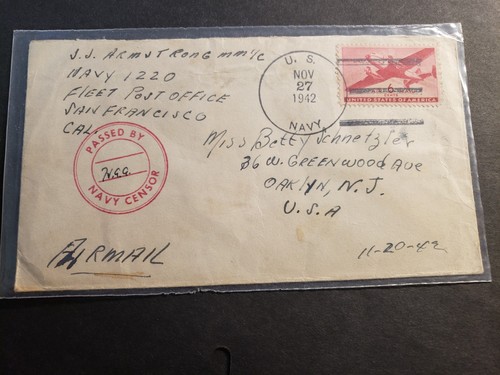 S.J. ARMSTRONG MM1/C
NAVY 1220
FLEET POST OFFICE
SAN FRANCISCO
CAL.
PASSED BY
NAVY CENSOR
U. S.
NOV
27
1942
NAVY
6
CENTS
UNITED STATES OF AMERICA
Miss Betty Schnetzler
36 W. GREENWOOD AVE
OAKLYN, N.J.
U.S.A
AIRMAIL
11-20-42